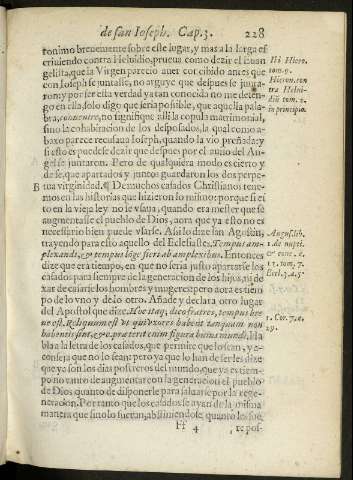 de san Ioseph. Cap. 3. 228
ronimo breuemente sobre este lugar, y mas a la larga es
criuiendo contra Heluidio, prueua como dezir el Euan
gelista, que la Virgen parecio auer concibido antes que
con Ioseph se juntasse, no arguye que despues se junta-
ron: y por ser esta verdad ya tan conocida no me deten-
go en ella, solo digo que seria possible, que aquella pala-
bra, conuenire, no signifique alli la copula matrimonial,
sino la cohabitacion de los desposados, la qual como a-
baxo parece recusaua Ioseph, quando la vio preñada: y
si esto es puedese dezir que despues por el auiso del An-
gel se juntaron. Pero de qualquiera modo es cierto y
de fe, que apartados y juntos guardaron los dos perpe-
B tua virginidad. ¶ De muchos casados Christianos tene-
mos en las historias que hizieron lo mismo: porque si es
to en la vieja ley no se vsaua, quando era menester que se
augmentasse el pueblo de Dios, aora que ya esto no es
necessario bien puede vsarse. Assi lo dize san Agustin,
trayendo para esto aquello del Eclesiastes. Tempus am-
plexandi, & tempus longe fieri ab amplexibus. Entonces
dize que era tiempo, en que no seria justo apartarse los
casados para siempre de la generacion de los hijos, ni de
xar de casarse los hombres y mugeres: pero aora es tiem
po de lo vno y de lo otro. Añade y declara otro lugar
del Apostol que dize. Hoc itaq; dico fratres, tempus bre
ue est. Reliquum est vt qui vxores habent tanquam non
habentes sint, &c. præterit enim figura huius mundi. Ha
bla a la letra de los casados, que permite que lo sean, y a-
conseja que no lo sean: pero ya que lo han de ser les dize
que ya son los dias postreros del mundo, que ya es tiem
po no tanto de augmentar con la generacion el pueblo
de Dios quanto de disponerle para saluarse por la rege-
neracion. Por tanto que los casados se ayan de la misma
manera que sino lo fueran, absteniendose quanto les fue
Ff 4
re pos-
Hieron. con
tra Helui-
diū tom. 2.
in principio.
August. lib.
1. de nupti.
& conc. c.
13. tom. 7.
Eccl. 3. a. 5
1. Cor. 7. c.
29.